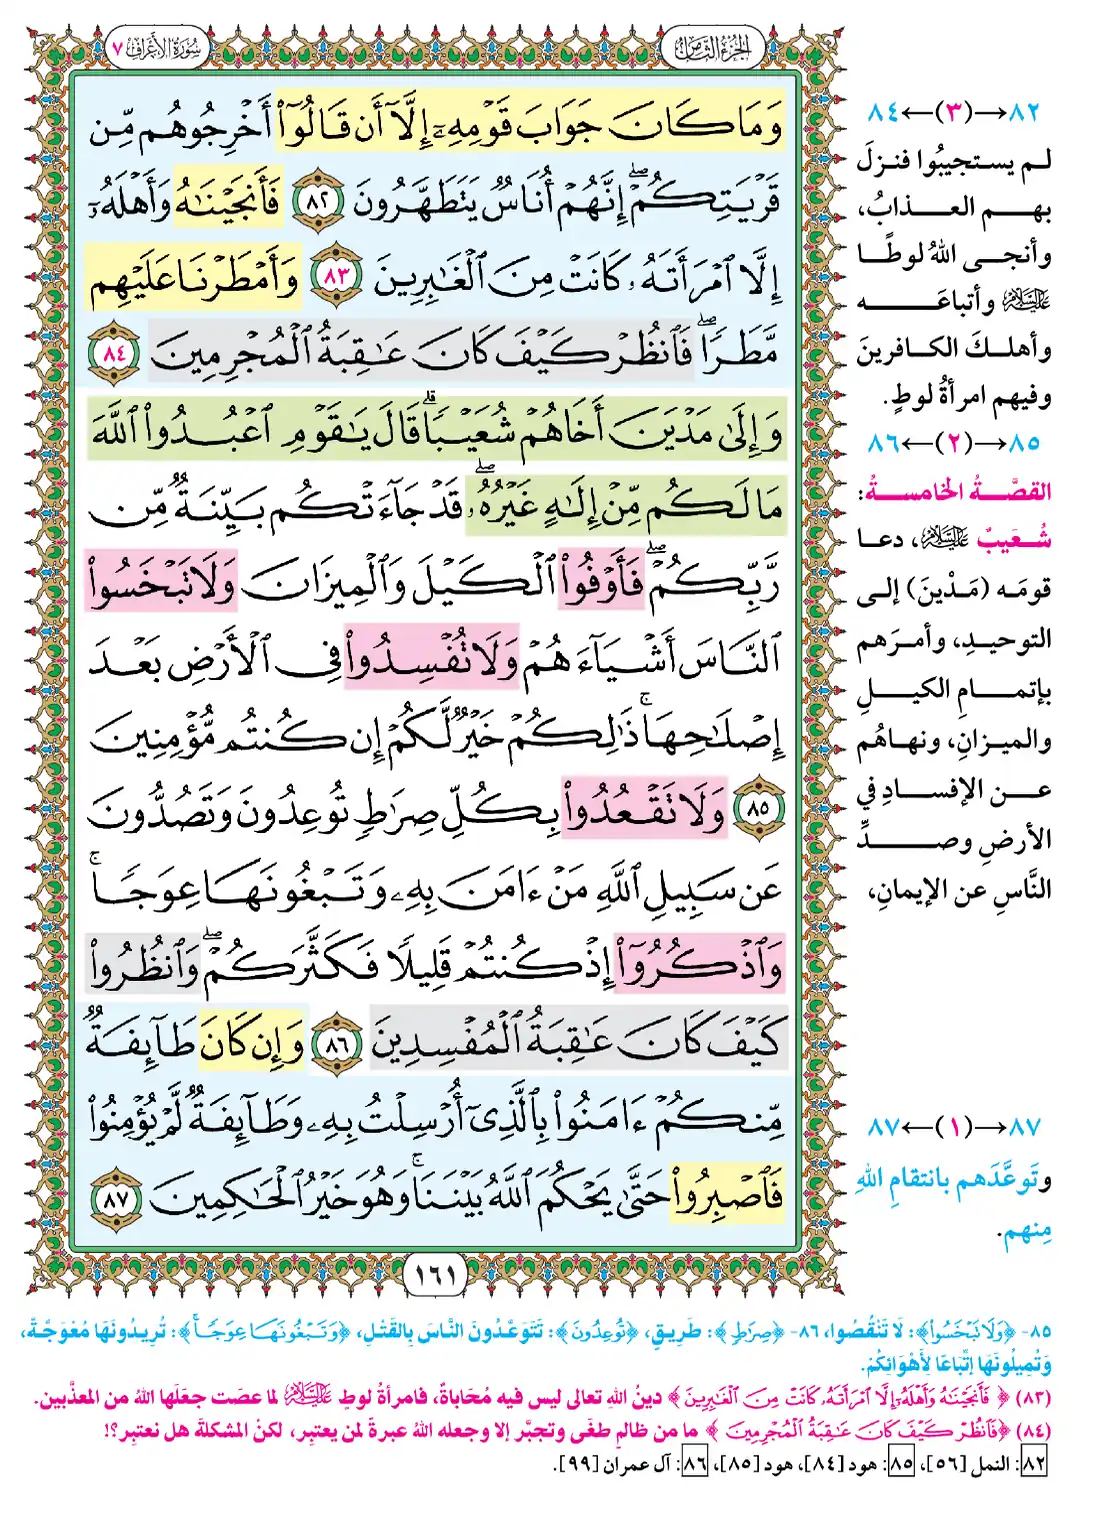 الجزء الثامن
سورة الأعراف ٧
وَمَا كَانَ جَوَابَ قَوْمِهِۦٓ إِلَّآ أَن قَالُوٓا۟ أَخْرِجُوهُم مِّن
قَرْيَتِكُمْ ۖ إِنَّهُمْ أُنَاسٌ يَتَطَهَّرُونَ ٨٢ فَأَنجَيْنَـٰهُ وَأَهْلَهُۥٓ
إِلَّا ٱمْرَأَتَهُۥ كَانَتْ مِنَ ٱلْغَـٰبِرِينَ ٨٣ وَأَمْطَرْنَا عَلَيْهِم
مَّطَرًا ۖ فَٱنظُرْ كَيْفَ كَانَ عَـٰقِبَةُ ٱلْمُجْرِمِينَ ٨٤
وَإِلَىٰ مَدْيَنَ أَخَاهُمْ شُعَيْبًا ۗ قَالَ يَـٰقَوْمِ ٱعْبُدُوا۟ ٱللَّهَ
مَا لَكُم مِّنْ إِلَـٰهٍ غَيْرُهُۥ ۖ قَدْ جَآءَتْكُم بَيِّنَةٌ مِّن
رَّبِّكُمْ ۖ فَأَوْفُوا۟ ٱلْكَيْلَ وَٱلْمِيزَانَ وَلَا تَبْخَسُوا۟
ٱلنَّاسَ أَشْيَآءَهُمْ وَلَا تُفْسِدُوا۟ فِى ٱلْأَرْضِ بَعْدَ
إِصْلَـٰحِهَا ۚ ذَٰلِكُمْ خَيْرٌ لَّكُمْ إِن كُنتُم مُّؤْمِنِينَ
٨٥ وَلَا تَقْعُدُوا۟ بِكُلِّ صِرَٰطٍ تُوعِدُونَ وَتَصُدُّونَ
عَن سَبِيلِ ٱللَّهِ مَنْ ءَامَنَ بِهِۦ وَتَبْغُونَهَا عِوَجًا ۚ
وَٱذْكُرُوٓا۟ إِذْ كُنتُمْ قَلِيلًا فَكَثَّرَكُمْ ۖ وَٱنظُرُوا۟
كَيْفَ كَانَ عَـٰقِبَةُ ٱلْمُفْسِدِينَ ٨٦ وَإِن كَانَ طَآئِفَةٌ
مِّنكُمْ ءَامَنُوا۟ بِٱلَّذِىٓ أُرْسِلْتُ بِهِۦ وَطَآئِفَةٌ لَّمْ يُؤْمِنُوا۟
فَٱصْبِرُوا۟ حَتَّىٰ يَحْكُمَ ٱللَّهُ بَيْنَنَا ۚ وَهُوَ خَيْرُ ٱلْحَـٰكِمِينَ ٨٧
١٦١
٨٢→(٣)←٨٤
لم يستجيبُوا فنزلَ
بهم العذابُ،
وأنجى اللهُ لوطًا
عليه السلام وأتباعَه
وأهلكَ الكافرينَ
وفيهم امرأةُ لوطٍ.
٨٥→(٢)←٨٦
القصَّةُ الخامسةُ:
شُعَيبٌ عليه السلام، دعا
قومَه (مَدْينَ) إلى
التوحيدِ، وأمرَهم
بإتمامِ الكيلِ
والميزانِ، ونهاهُم
عن الإفسادِ في
الأرضِ وصدِّ
النَّاسِ عن الإيمانِ،
٨٧→(١)←٨٧
وتَوعَّدَهم بانتقامِ اللهِ
مِنهم.
٨٥- ﴿وَلَا تَبْخَسُوا۟﴾: لَا تَنْقُصُوا، ٨٦- ﴿صِرَٰطٍ﴾: طَرِيقٍ، ﴿تُوعِدُونَ﴾: تَتَوَعَّدُونَ النَّاسَ بِالقَتْلِ، ﴿وَتَبْغُونَهَا عِوَجًا﴾: تُرِيدُونَهَا مُعْوَجَّةً،
وَتُمِيلُونَهَا اتِّبَاعًا لِأَهْوَائِكُمْ.
(٨٣) ﴿فَأَنجَيْنَـٰهُ وَأَهْلَهُۥٓ إِلَّا ٱمْرَأَتَهُۥ كَانَتْ مِنَ ٱلْغَـٰبِرِينَ﴾ دينُ اللهِ تعالى ليس فيه مُحَاباةٌ، فامرأةُ لوطٍ عليه السلام لما عصَت جعلَها اللهُ من المعذَّبين.
(٨٤) ﴿فَٱنظُرْ كَيْفَ كَانَ عَـٰقِبَةُ ٱلْمُجْرِمِينَ﴾ ما من ظالمٍ طغَى وتجبَّر إلا وجعله اللهُ عبرةً لمن يعتبِر، لكنْ المشكلةَ هل نعتبِر؟!
٨٢: النمل [٥٦]، ٨٥: هود [٨٤]، هود [٨٥]، ٨٦: آل عمران [٩٩].